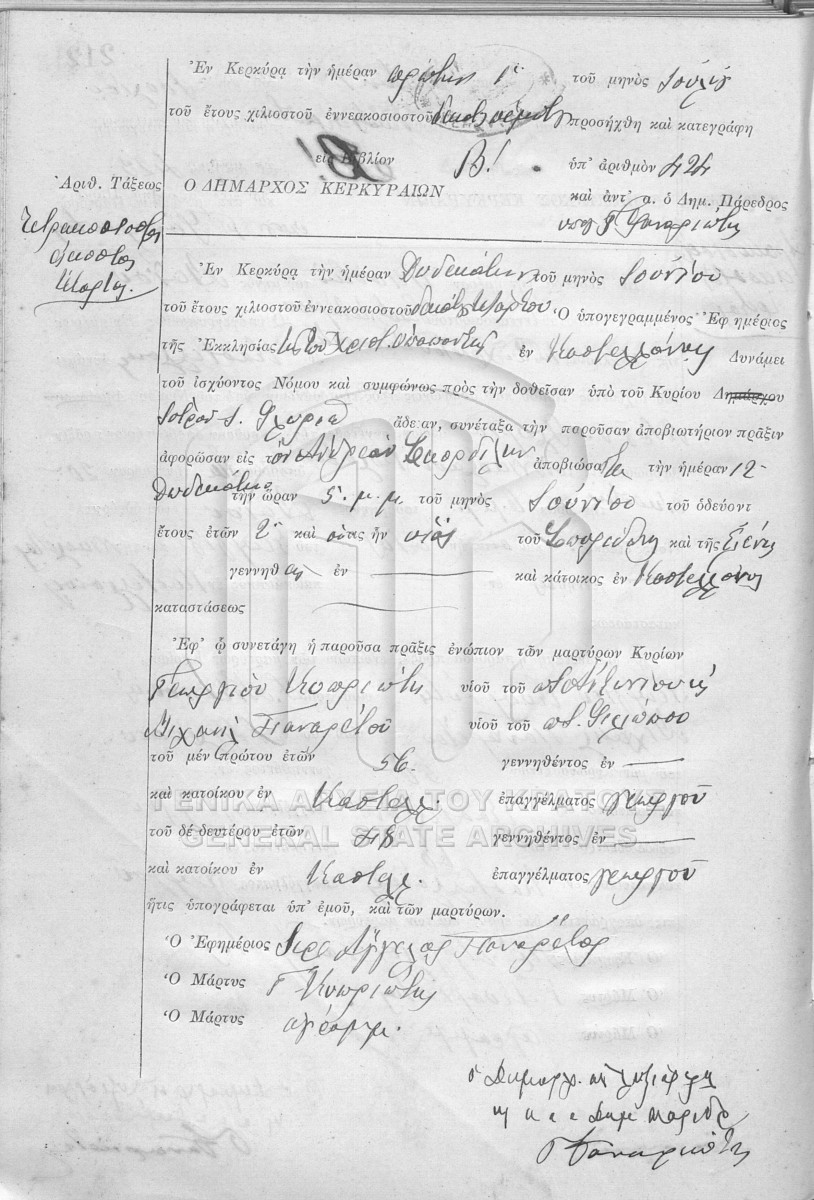 Ἐν Κερκύρᾳ τὴν ἡμέραν πρώτην 1ην τοῦ μηνὸς Ἰουλίου
τοῦ ἔτους χιλιοστοῦ ἐννεακοσιοστοῦ δεκάτου πέμπτου προσήχθη καὶ κατεγράφη
εἰς Βιβλίον Β! ὑπ' ἀριθμὸν 424
Ἀριθ. Τάξεως
Ο ΔΗΜΑΡΧΟΣ ΚΕΡΚΥΡΑΙΩΝ
καὶ ἀντ' α. ὁ Δημ. Πάρεδρος
Τετρακοσιοστὸς
εἰκοστὸς
τέταρτος
Ἐν Κερκύρᾳ τὴν ἡμέραν Δωδεκάτην τοῦ μηνὸς Ἰουνίου
τοῦ ἔτους χιλιοστοῦ ἐννεακοσιοστοῦ δεκάτου Ὁ ὑπογεγραμμένος Ἐφημέριος
τῆς Ἐκκλησίας ἐν Καστελλάνης Δυνάμει
τοῦ ἰσχύοντος Νόμου καὶ συμφώνως πρὸς τὴν δοθεῖσαν ὑπὸ τοῦ Κυρίου Δημάρχου
Ἰατροῦ ἄδειαν, συνέταξα τὴν παροῦσαν ἀποβιωτήριον πρᾶξιν
ἀφορῶσαν εἰς τὸν Ἀνδρέαν ἀποβιώσαντα τὴν ἡμέραν 12
Δωδεκάτην τὴν ὥραν 5. μ.μ. τοῦ μηνὸς Ἰουνίου τοῦ ὁδεύοντ
ἔτους ἐτῶν 2 καὶ οὗτος ἦν υἱὸς τοῦ Σπυρίδωνος καὶ τῆς Ἑλένης
γεννηθεὶς ἐν καὶ κάτοικος ἐν Καστελλάνης
καταστάσεως
Ἐφ' ᾧ συνετάγη ἡ παροῦσα πρᾶξις ἐνώπιον τῶν μαρτύρων Κυρίων
Γεωργίου Κυπριώτη υἱοῦ τοῦ ποτ. Ἀντωνίου
Μιχαὴλ Παναρέτου υἱοῦ τοῦ ποτ. Φιλίππου
τοῦ μὲν πρώτου ἐτῶν 56. γεννηθέντος ἐν
καὶ κατοίκου ἐν Καστελλ. ἐπαγγέλματος γεωργοῦ
ΓΕΝΙΚΑ ΑΡΧΕΙΑ ΤΟΥ ΚΡΑΤΟΥΣ
τοῦ δὲ δευτέρου ἐτῶν 48 γεννηθέντος ἐν
GENERAL STATE ARCHIVES
καὶ κατοίκου ἐν Καστελλ. ἐπαγγέλματος γεωργοῦ
ἥτις ὑπογράφεται ὑπ' ἐμοῦ, καὶ τῶν μαρτύρων.
Ὁ Ἐφημέριος Ἱερ. Ἄγγελος Πανάρετος
Ὁ Μάρτυς Γ Κυπριώτης
Ὁ Μάρτυς ἀγράμμ.